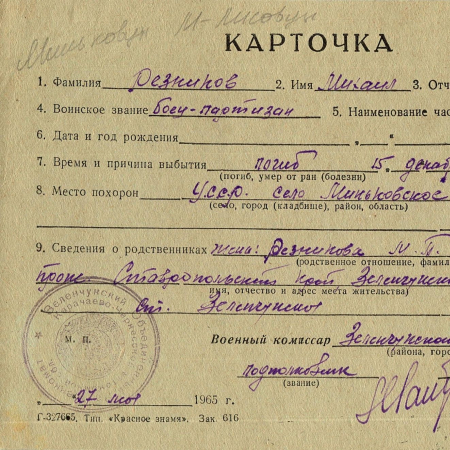 КАРТОЧКА
1. Фамилия Резников 2. Имя Михаил 3. Отч
4. Воинское звание боец-партизан 5. Наименование час
6. Дата и год рождения
7. Время и причина выбытия погиб 15 декаб
(погиб, умер от ран (болезни)
8. Место похорон У.С.С.Р. село Миньковское
(село, город (кладбище), район, область)
9. Сведения о родственниках жена: Резникова М. П.
(родственное отношение, фамил
прож Ставропольский край Зеленчукск
имя, отчество и адрес места жительства)
ст. Зеленчукская
М. П.
Военный комиссар Зеленчукск
(района, горо
подполковник
(звание)
27 мая 1965 г.
Г-327665. Тип. «Красное знамя». Зак. 616